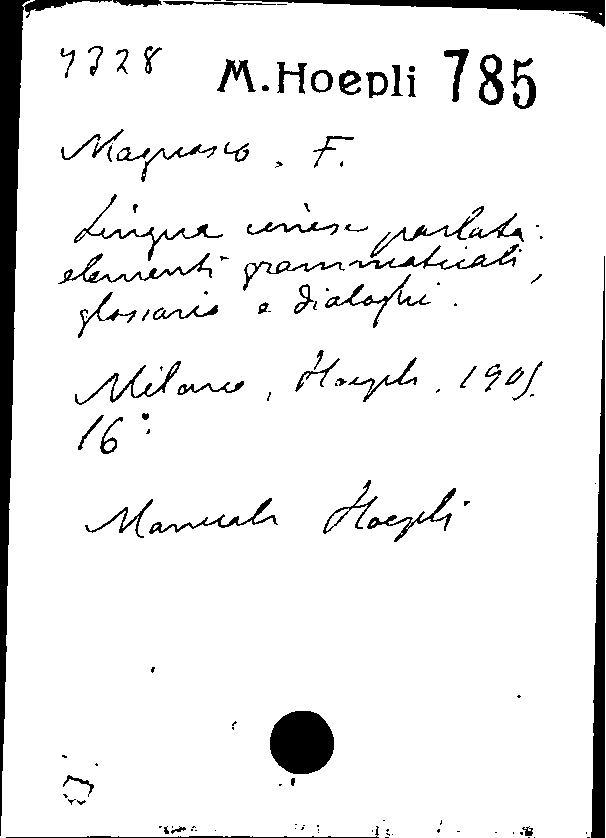 7328 M. Hoepli 785
Magnasco, F.
Lingua cinese parlata:
elementi grammaticali,
glossario e dialoghi.
Milano, Hoepli. 1905.
16°
Manuali Hoepli